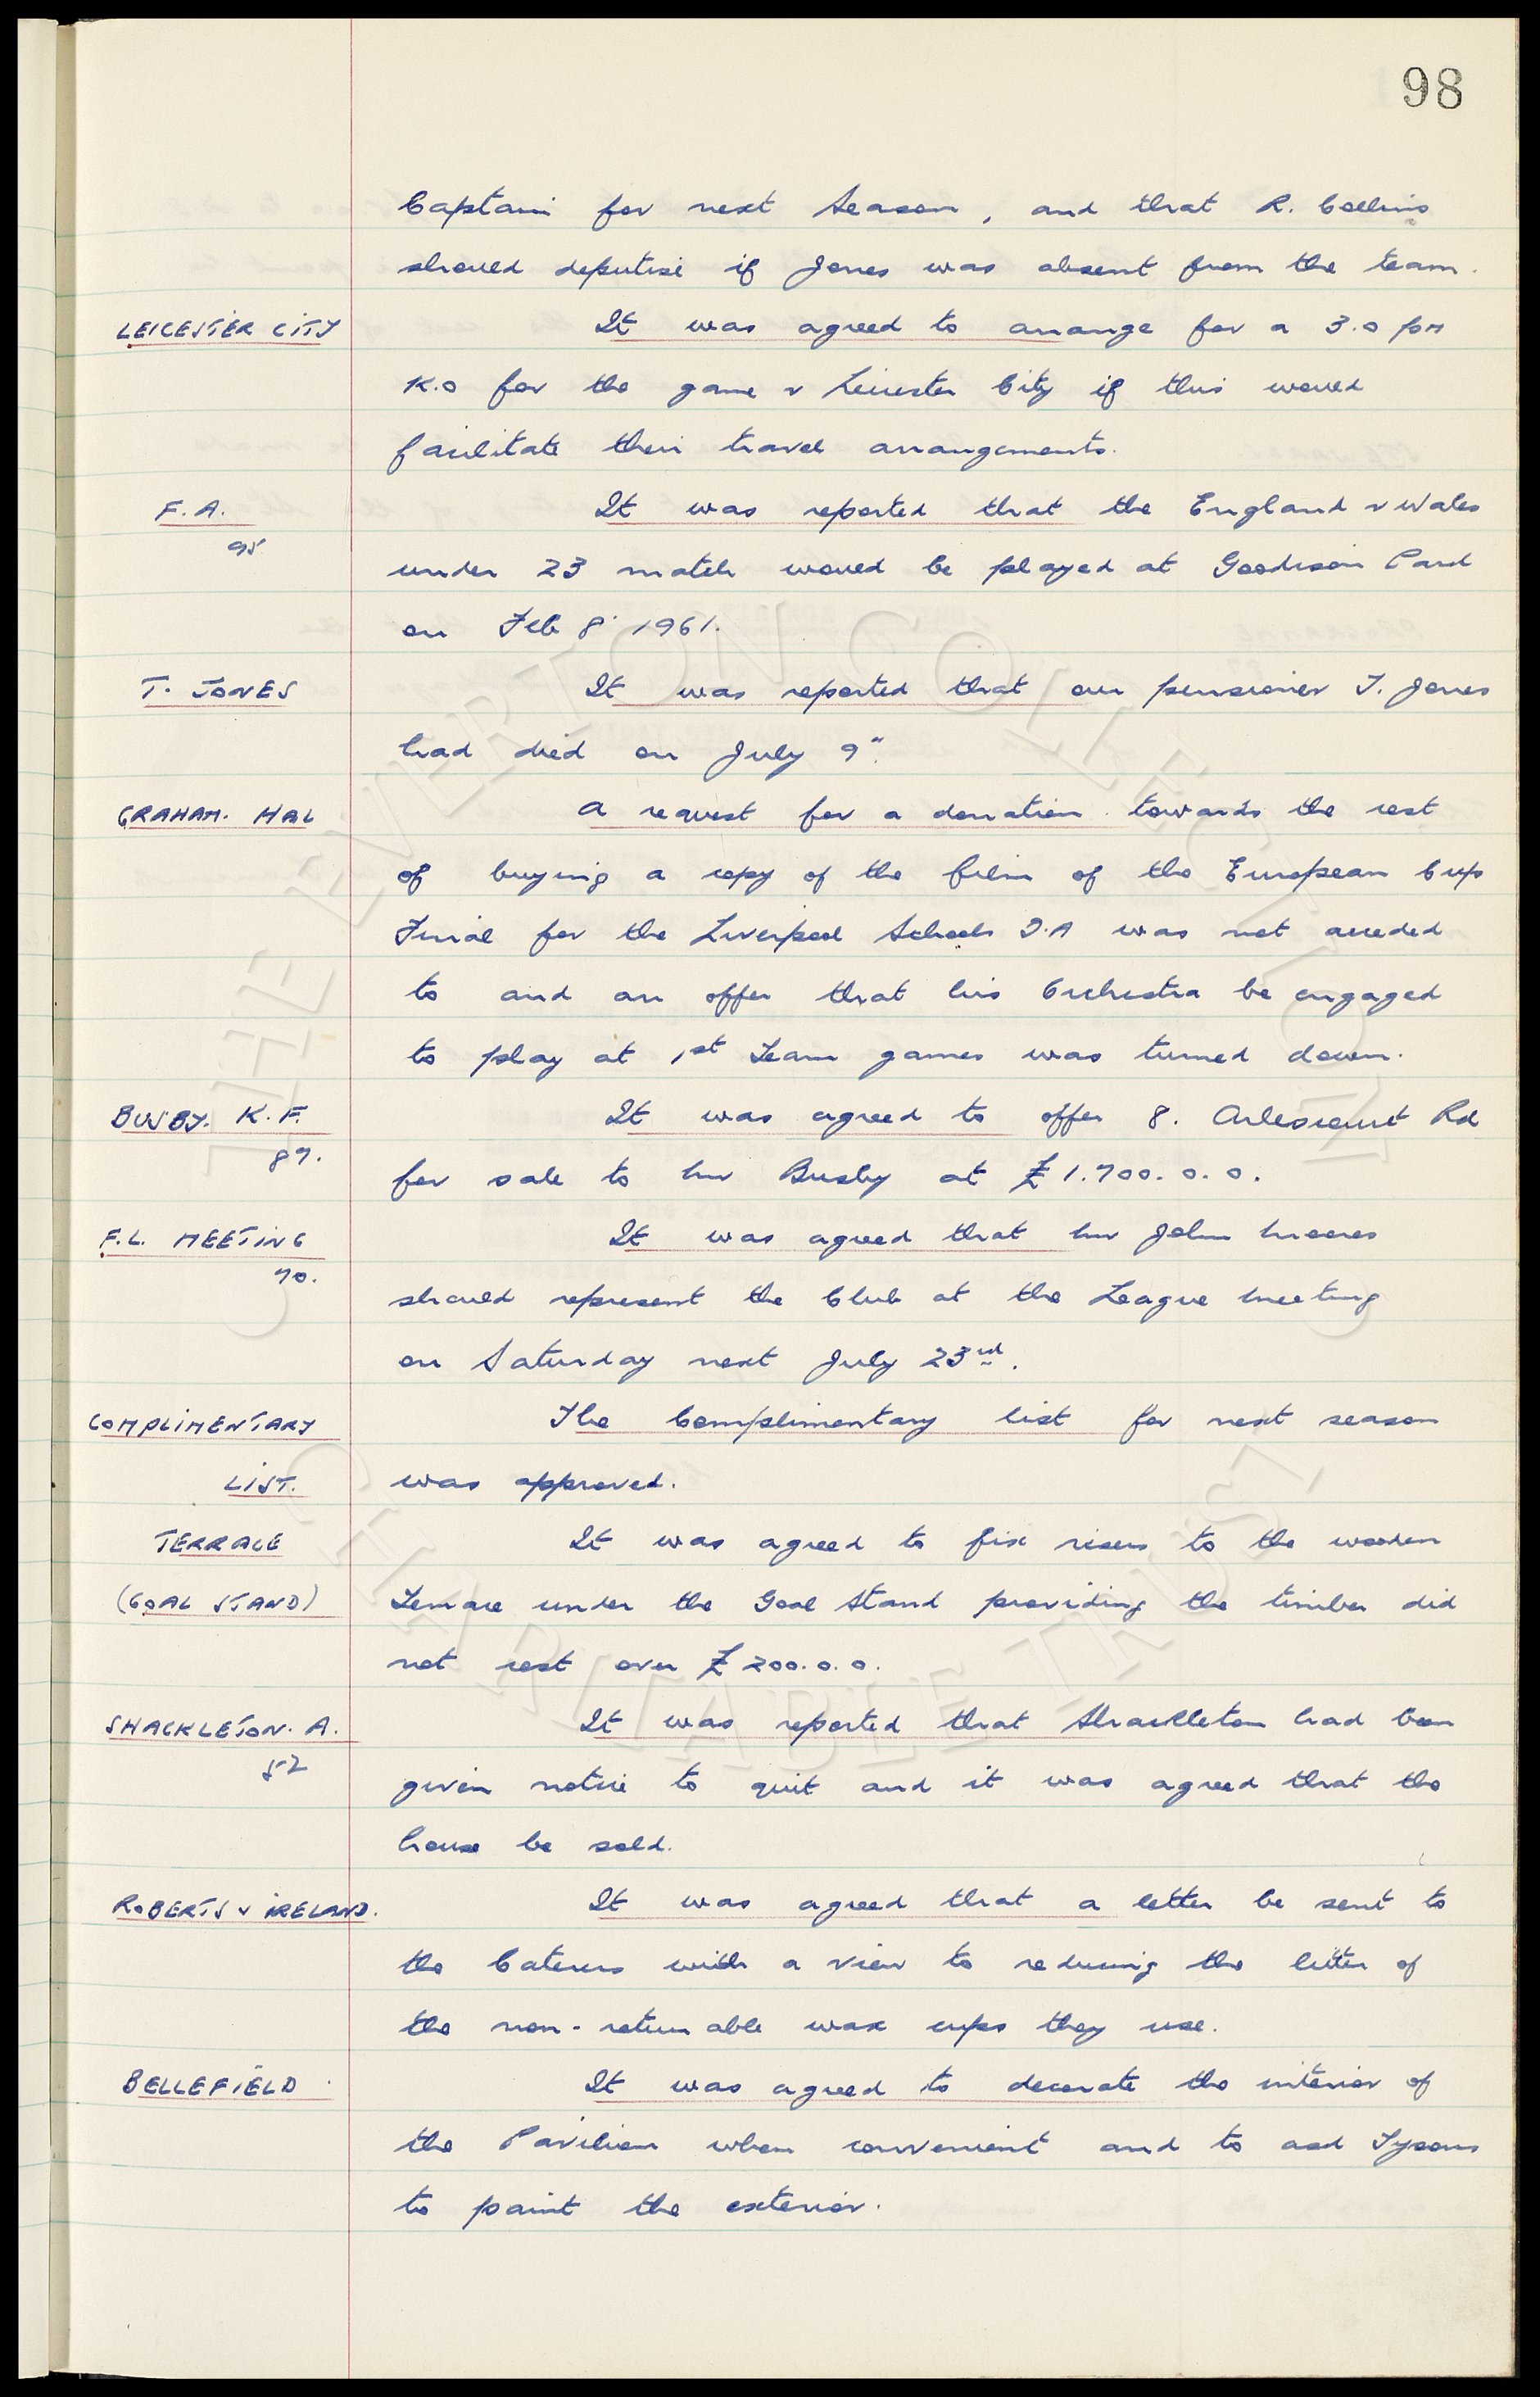 98
Captain for next Season, and that R. Collins
should deputise if Jones was absent from the team.
LEICESTER CITY It was agreed to arrange for a 3.0 pm
K.O for the game v Leicester City if this would
facilitate their travel arrangements.
F.A. It was reported that the England v Wales
95
under 23 match would be played at Goodison Park
on Feb 8" 1961.
T. JONES It was reported that our pensioner T. Jones
had died on July 9".
GRAHAM. HAL A request for a donation towards the cost
of buying a copy of the film of the European Cup
Final for the Liverpool Schools F.A was not acceded
to and an offer that his Orchestra be engaged
to play at 1st Team games was turned down.
BUSBY. K.F. It was agreed to offer 8. Arlescourt Rd
87.
for sale to Mr Busby at £1.700.0.0.
F.L. MEETING It was agreed that Mr John Moores
70.
should represent the Club at the League Meeting
on Saturday next July 23rd.
COMPLIMENTARY The Complimentary list for next season
LIST. was approved.
TERRACE It was agreed to fix risers to the wooden
(GOAL STAND) Terrace under the Goal Stand providing the timber did
not cost over £200.0.0.
SHACKLETON. A. It was reported that Shackleton had been
52
given notice to quit and it was agreed that the
house be sold.
ROBERTS v IRELAND. It was agreed that a letter be sent to
the Caterers with a view to reducing the litter of
the non-returnable wax cups they use.
BELLEFIELD. It was agreed to decorate the interior of
the Pavilion when convenient and to ask Tysons
to paint the exterior.
THE EVERTON COLLECTION
CHARITABLE TRUST